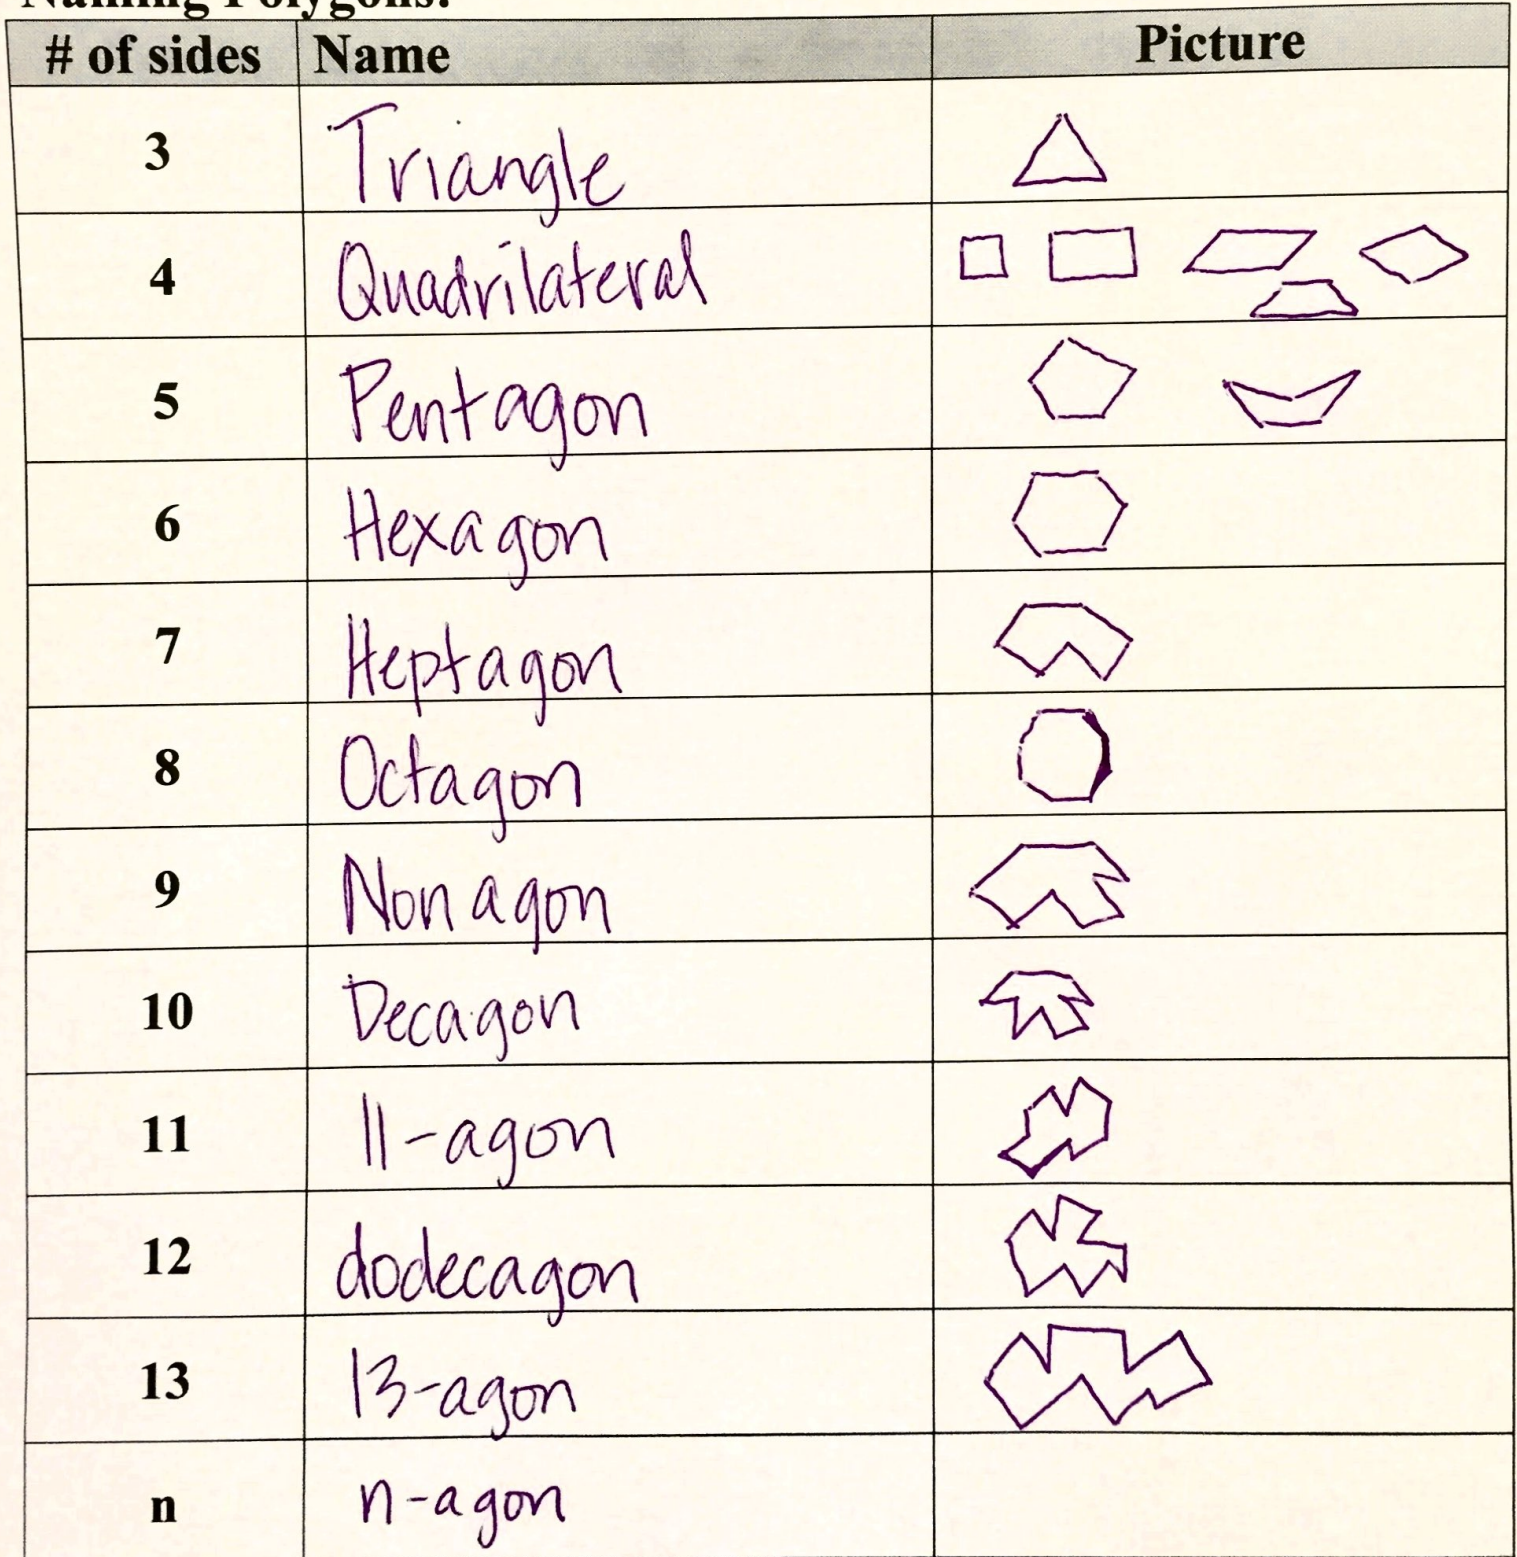 Naming Polygons:
# of sides Name Picture
3 Triangle
4 Quadrilateral
5 Pentagon
6 Hexagon
7 Heptagon
8 Octagon
9 Nonagon
10 Decagon
11 11-agon
12 dodecagon
13 13-agon
n n-agon